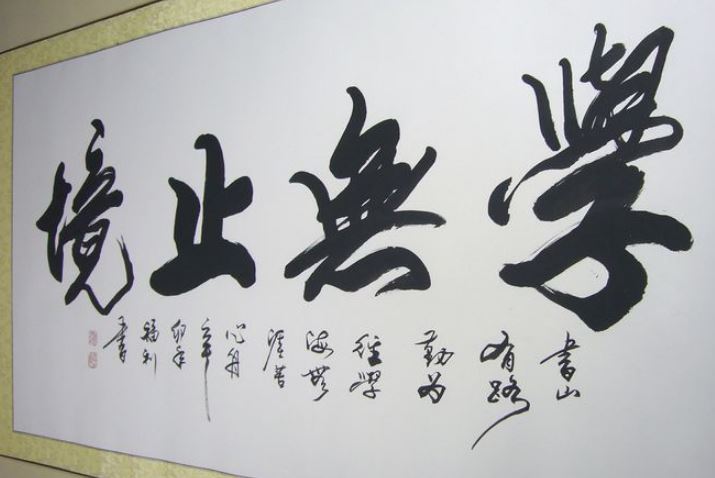 學無止境
書山
有路
勤为
徑學
海無
涯苦
作舟
辛
卯年
福利
書